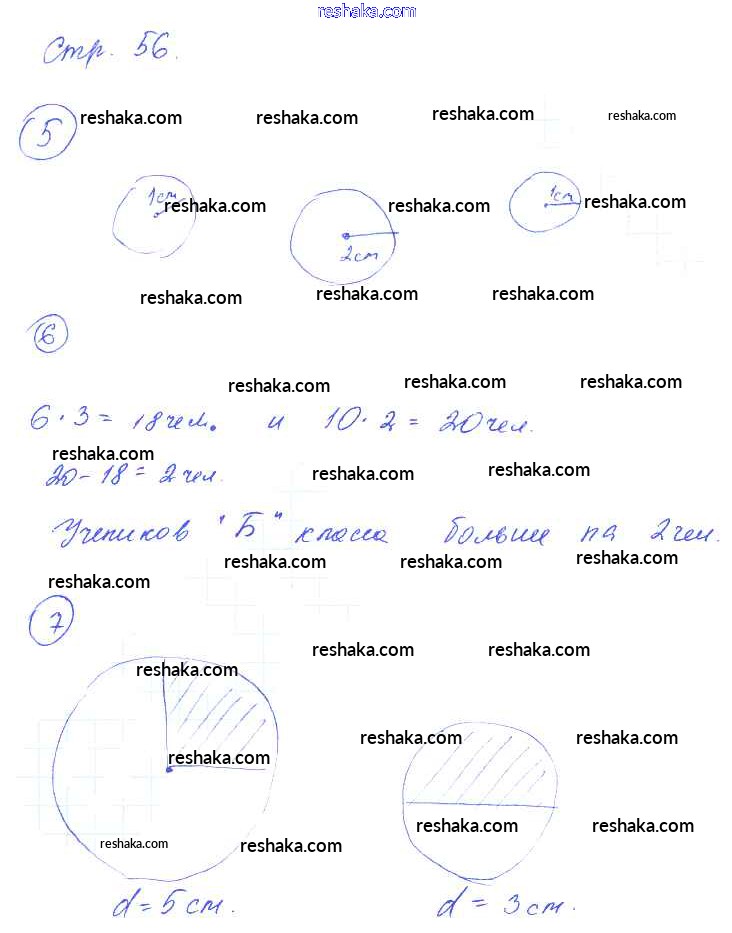 reshaka.com
Стр. 56.
5 reshaka.com reshaka.com reshaka.com reshaka.com
1 см reshaka.com reshaka.com 1 см reshaka.com
2 см
reshaka.com reshaka.com reshaka.com
6
reshaka.com reshaka.com reshaka.com
6 · 3 = 18 чел. и 10 · 2 = 20 чел.
reshaka.com reshaka.com reshaka.com
20 - 18 = 2 чел.
Учеников "Б" класса больше на 2 чел.
reshaka.com reshaka.com reshaka.com
reshaka.com
7
reshaka.com reshaka.com
reshaka.com
reshaka.com reshaka.com
reshaka.com
reshaka.com reshaka.com
reshaka.com reshaka.com
d = 5 см. d = 3 см.